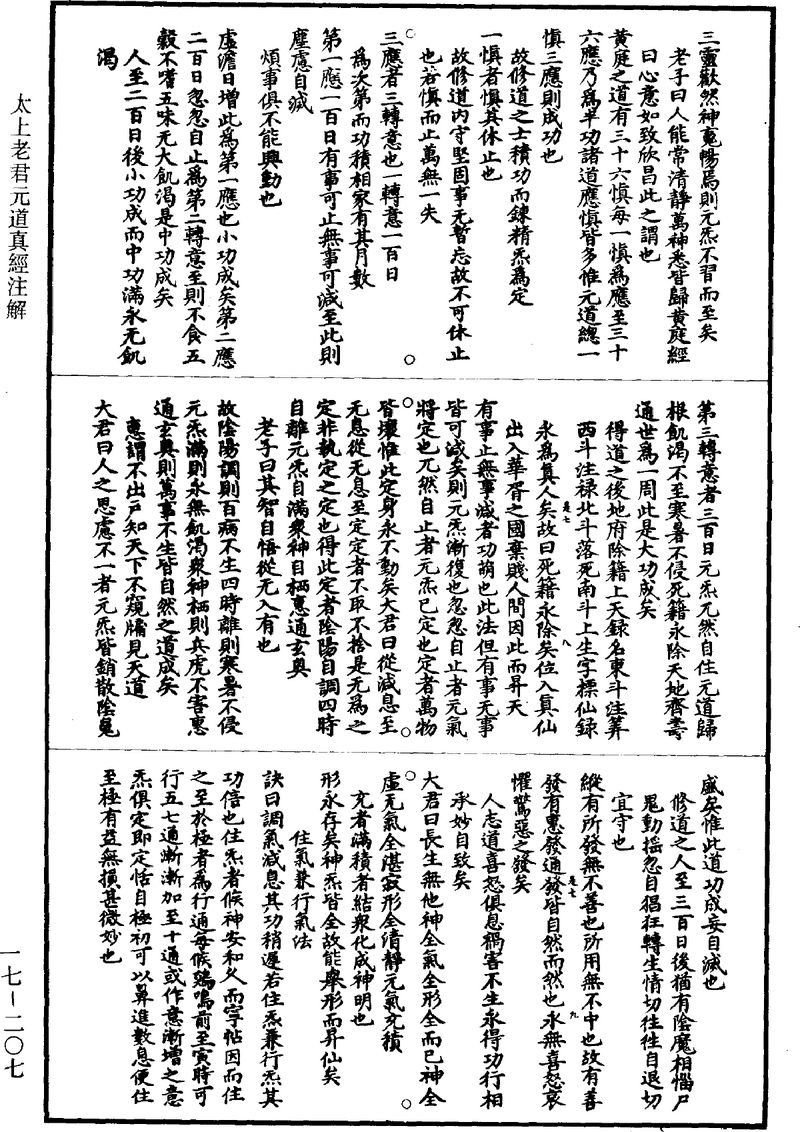 太上老君元道真經注解
一七—二〇七
三靈歡然神䰟暢焉則元炁不習而至矣
老子曰人能常清靜萬神悉皆歸黃庭經
曰心意如致欣昌此之謂也
黃庭之道有三十六慎每一慎爲應至三十
六應乃爲半功諸道應慎皆多惟元道總一
慎三應則成功也
故修道之士積功而鍊精炁爲定
一慎者慎其休止也
故修道内守堅固事无暫忘故不可休止
也若慎而止萬無一失
三應者三轉意也一轉意一百日
爲次第而功積相家有其月數
第一應一百日有事可止無事可減至此則
塵慮自減
煩事俱不能興動也
虛澹日增此爲第一應也小功成矣第二應
二百日忽忽自止爲第二轉意至則不食五
穀不嗜五味无大飢渴是中功成矣
人至二百日後小功成而中功滿永无飢
渴
第三轉意者三百日元炁兀然自住元道歸
根飢渴不至寒暑不侵死籍永除天地齊壽
通世爲一周此是大功成矣
得道之後地府除籍上天録名東斗注筭
西斗注禄北斗落死南斗上生字標仙録
是七
永爲真人矣故曰死籍永除矣位入真仙
八
出入華胥之國棄賤人間因此而昇天
有事止無事減者功萌也此法但有事无事
皆可減矣則元炁漸復也忽忽自止者元氣
將定也兀然自止者元炁已定也定者萬物
皆壞惟此定身永不動矣大君曰從減息至
无息從无息至定定者不取不捨是无爲之
定非執定之定也得此定者陰陽自調四時
自離元炁自滿衆神自栖惠通玄奥
老子曰其智自悟從无入有也
故陰陽調則百病不生四時離則寒暑不侵
元炁滿則永無飢渴衆神栖則兵虎不害惠
通玄奥則萬事不生皆自然之道成矣
惠謂不出户知天下不窺牖見天道
大君曰人之思慮不一者元炁皆銷散陰鬼
盛矣惟此道功成妄自滅也
修道之人至三百日後猶有陰魔相惱尸
鬼動摇忽自猖狂轉生情切往往自退切
宜守也
縱有所發無不善也所用無不中也故有善
是七
發有惠發通發皆自然而然也永無喜怒哀
九
懼驚惡之發矣
人志道喜怒俱息禍害不生永得功行相
承妙自致矣
大君曰長生無他神全氣全形全而已神全
虛元氣全湛寂形全清靜元氣充積
充者滿積者結衆化成神明也
形永存矣神炁皆全故能舉形而昇仙矣
住氣兼行氣法
訣曰調氣減息其功稍遲若住炁兼行炁其
功倍也住炁者候神安和久而字帖因而住
之至於極者爲行通每候鷄鳴前至寅時可
行五七通漸漸加至十通或作意漸增之意
炁俱定即定恬自極初可以鼻進數息便住
至極有益無損甚微妙也